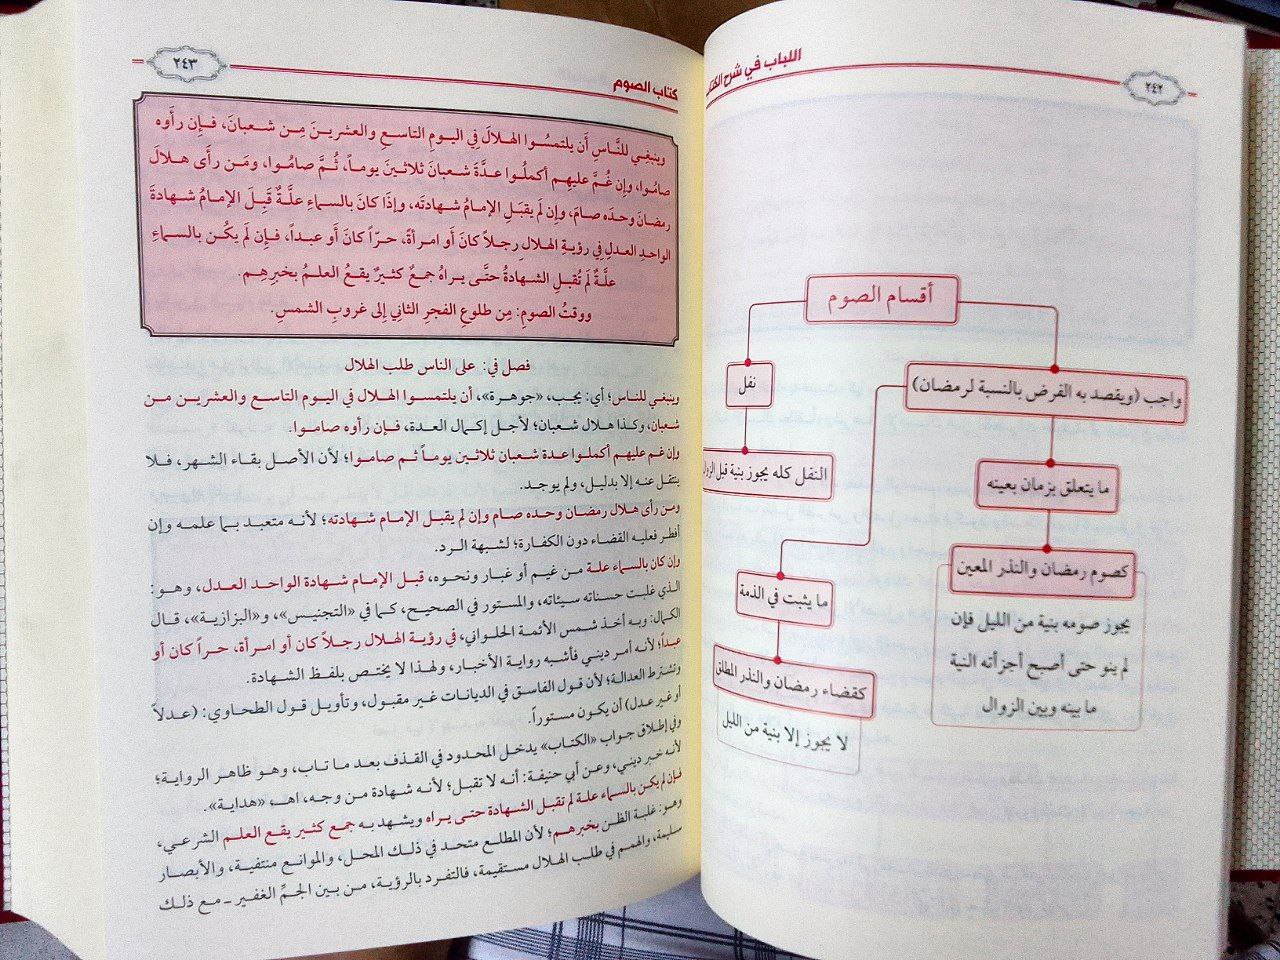 اللباب في شرح الكتا
٢٤٢
أقسام الصوم
واجب (ويقصد به الفرض بالنسبة لرمضان)
نفل
ما يتعلق بزمان بعينه
النفل كله يجوز بنية قبل الزوال
كصوم رمضان والنذر المعين
يجوز صومه بنية من الليل فإن
لم ينو حتى أصبح أجزأته النية
ما بينه وبين الزوال
ما يثبت في الذمة
كقضاء رمضان والنذر المطلق
لا يجوز إلا بنية من الليل
كتاب الصوم
٢٤٣
وينبغِي للنَّاسِ أَن يلتمسُوا الهلالَ فِي اليومِ التاسعِ والعشرينَ مِن شعبانَ، فَإِن رأَوه
صامُوا، وإِن غُمَّ عليهِم أكملُوا عدَّةَ شعبانَ ثلاثينَ يوماً، ثُمَّ صامُوا، ومَن رأَى هلالَ
رمضانَ وحدَه صامَ، وإِن لَم يقبَلِ الإمامُ شهادتَه، وإِذَا كانَ بالسماءِ علَّةٌ قَبِلَ الإمامُ شهادةَ
الواحدِ العدلِ فِي رؤيةِ الهلالِ رجلاً كانَ أَو امرأةً، حرّاً كانَ أَو عبداً، فَإِن لَم يكُن بالسماءِ
علَّةٌ لَم تُقبلِ الشهادةُ حتَّى يراهُ جمعٌ كثيرٌ يقعُ العلمُ بخبرِهِم.
ووقتُ الصومِ: مِن طلوعِ الفجرِ الثانِي إِلى غروبِ الشمسِ.
فصل في: على الناس طلب الهلال
وينبغي للناس؛ أي: يجب، «جوهرة»، أن يلتمسوا الهلال في اليوم التاسع والعشرين من
شعبان، وكذا هلال شعبان؛ لأجل إكمال العدة، فإن رأوه صاموا.
وإن غم عليهم أكملوا عدة شعبان ثلاثين يوماً ثم صاموا؛ لأن الأصل بقاء الشهر، فلا
ينتقل عنه إلا بدليل، ولم يوجد.
ومن رأى هلال رمضان وحده صام وإن لم يقبل الإمام شهادته؛ لأنه متعبد بما علمه وإن
أفطر فعليه القضاء دون الكفارة؛ لشبهة الرد.
وإن كان بالسماء علة من غيم أو غبار ونحوه، قبل الإمام شهادة الواحد العدل، وهو:
الذي غلبت حسناته سيئاته، والمستور في الصحيح، كما في «التجنيس»، و«البزازية»، قال
الكمال: وبه أخذ شمس الأئمة الحلواني، في رؤية الهلال رجلاً كان أو امرأة، حراً كان أو
عبداً؛ لأنه أمر ديني فأشبه رواية الأخبار، ولهذا لا يختص بلفظ الشهادة.
وتشترط العدالة؛ لأن قول الفاسق في الديانات غير مقبول، وتأويل قول الطحاوي: (عدلاً
أو غير عدل) أن يكون مستوراً.
وفي إطلاق جواب «الكتاب» يدخل المحدود في القذف بعد ما تاب، وهو ظاهر الرواية؛
لأنه خبر ديني، وعن أبي حنيفة: أنه لا تقبل؛ لأنه شهادة من وجه، اهـ «هداية».
فإن لم يكن بالسماء علة لم تقبل الشهادة حتى يراه ويشهد به جمع كثير يقع العلم الشرعي،
وهو: غلبة الظن بخبرهم؛ لأن المطلع متحد في ذلك المحل، والموانع منتفية، والأبصار
سليمة، والهمم في طلب الهلال مستقيمة، فالتفرد بالرؤية، من بين الجمِّ الغفير ـ مع ذلك